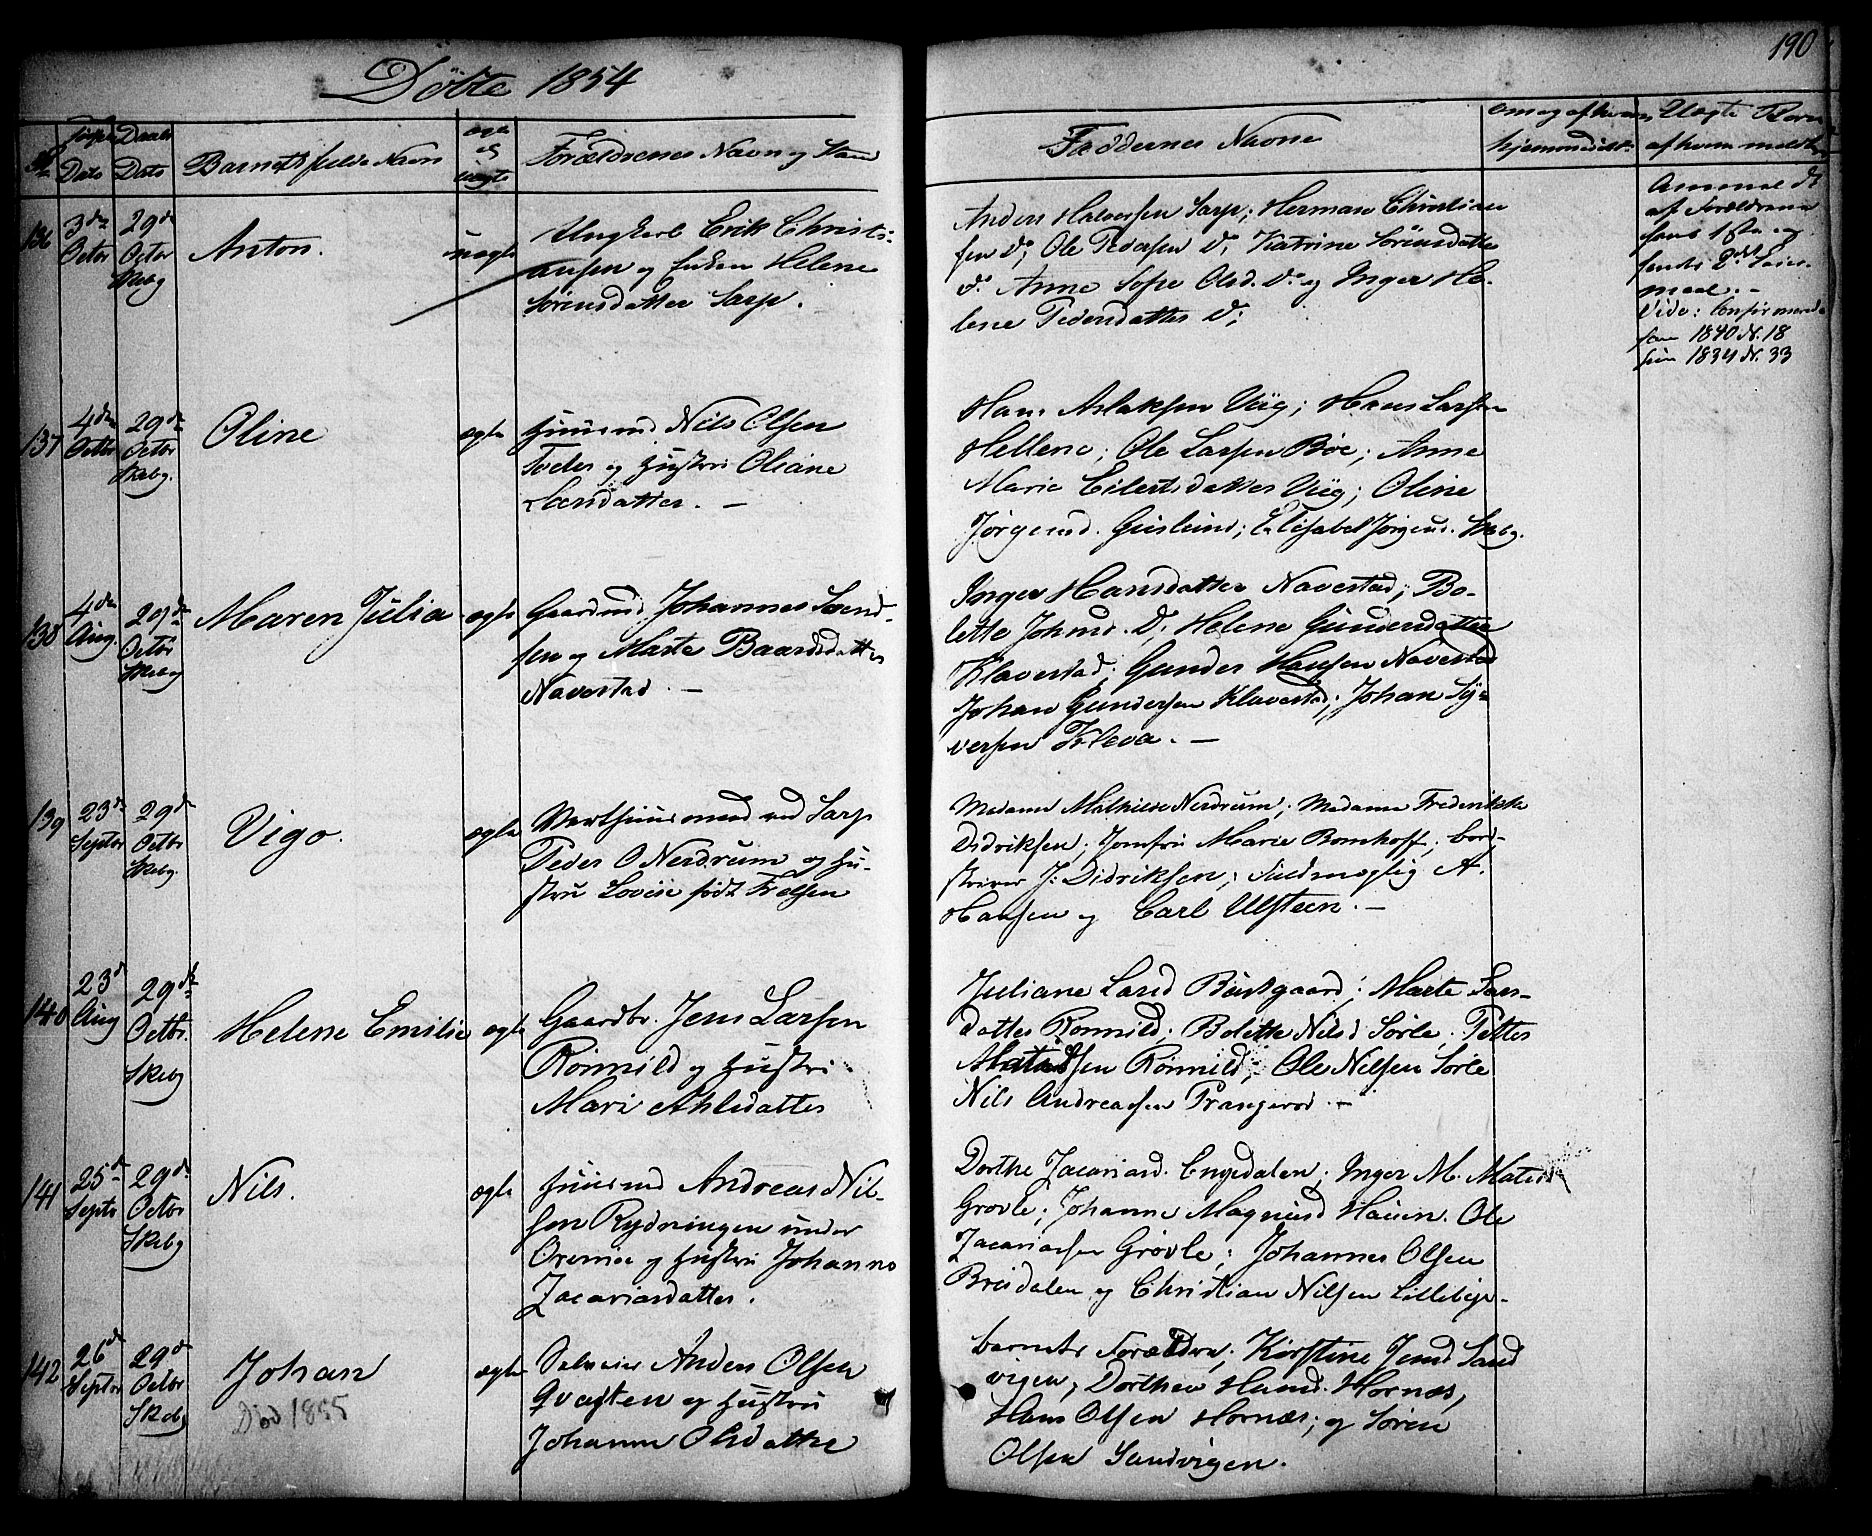 190
Döbte 1854
No Fødsels Dato Daabs Dato Barnets fulde Navn ægte el uægte Forældrenes Navn og Stand
Faddernes Navne
om og af hvem hjemmedøbt
Uægte Børn af hvem meldt
136 3de Octbr 29de Octbr Skebg Anton. uægte
Ungkarl Erik Christi-
ansen og Enken Helene
Sörensdatter Sarp.
Anders Halvorsen Sarp; Herman Christian
sen do; Ole Pedersen do; Katrine Sörensdatter
do. Anne Sofie Olsd. do og Inger He-
lene Pedersdatter do;
Anmeldt
af Forældrene
hans 1ste og
hendes 2det Leier-
maal. -
Vide: Confirmerede
han 1840 N. 18
hun 1834 N. 33
137 4de Octbr 29de Octbr Skebg. Oline ægte
Huusmd Nils Olsen
Torder og Hustru Oliane
Larsdatter. -
Hans Aslaksen Viig; Hans Larsen
Hellene; Ole Larsen Böe; Anne
Marie Eilertsdatter Viig; Oline
Jörgensd. Guslund; Elisabet Jörgensd. Skebg.
138 4de Aug. 29de Octbr Skebg Maren Julia ægte
Gaardmd Johannes Svend-
sen og Marte Baardsdatter
Navestad. -
Inger Hansdatter Navestad; Bo-
lette Johnsd. do; Helene Gundersdatter
Klavestad; Gunder Hansen Navestad
Johan Gundersen Klavestad; Johan Sy-
versen Kleva. -
139 23de Septbr 29de Octbr Skebg. Vigo. ægte
Værthuusmand ved Sarp
Peder O Nerdrum og Hu-
stru Lovise født Frelsen
Madame Mathilde Nerdrum; Madame Frederikke
Didriksen; Jomfru Marie Bomhoff; Bord-
skriver J: Didriksen; Fuldmægtig A.
Hansen og Carl Ulsteen. -
140 23de Aug 29de Octbr. Skebg Helene Emilie ægte
Gaardbr. Jens Larsen
Römild og Hustru
Mari Ahlsdatter
Juliane Larsd Bustgaard; Marte Lars-
datter Romild; Bolette Nilsd Sörle; Petter
Römild; Ole Nilsen Sörle
Nils Andreassen Prangerod. -
141 25de Septbr 29de Octbr Skebg Nils. ægte
Huusmd Andreas Nil-
sen Rydningen under
og Hustru Johanne
Zacariasdatter.
Dorthe Zacariasd. Engedalen; Inger M. Matisd
Grövle; Johanne Magnusd Hauen. Ole
Zacariassen Grövle; Johannes Olsen
Bredalen og Christian Nilsen Lillebye.
142 26de Septbr 29de Octbr Skebg Johan ægte
Död 1855
Selveier Anders Olsen
Qvasten og Hustru
Johanne Olsdatter
Barnets Forældre; Kirstine Jensd Sand
vigen; Dorthea Hansd. Hornæs,
Hans Olsen Hornæs; og Sören
Olsen Sandvigen.